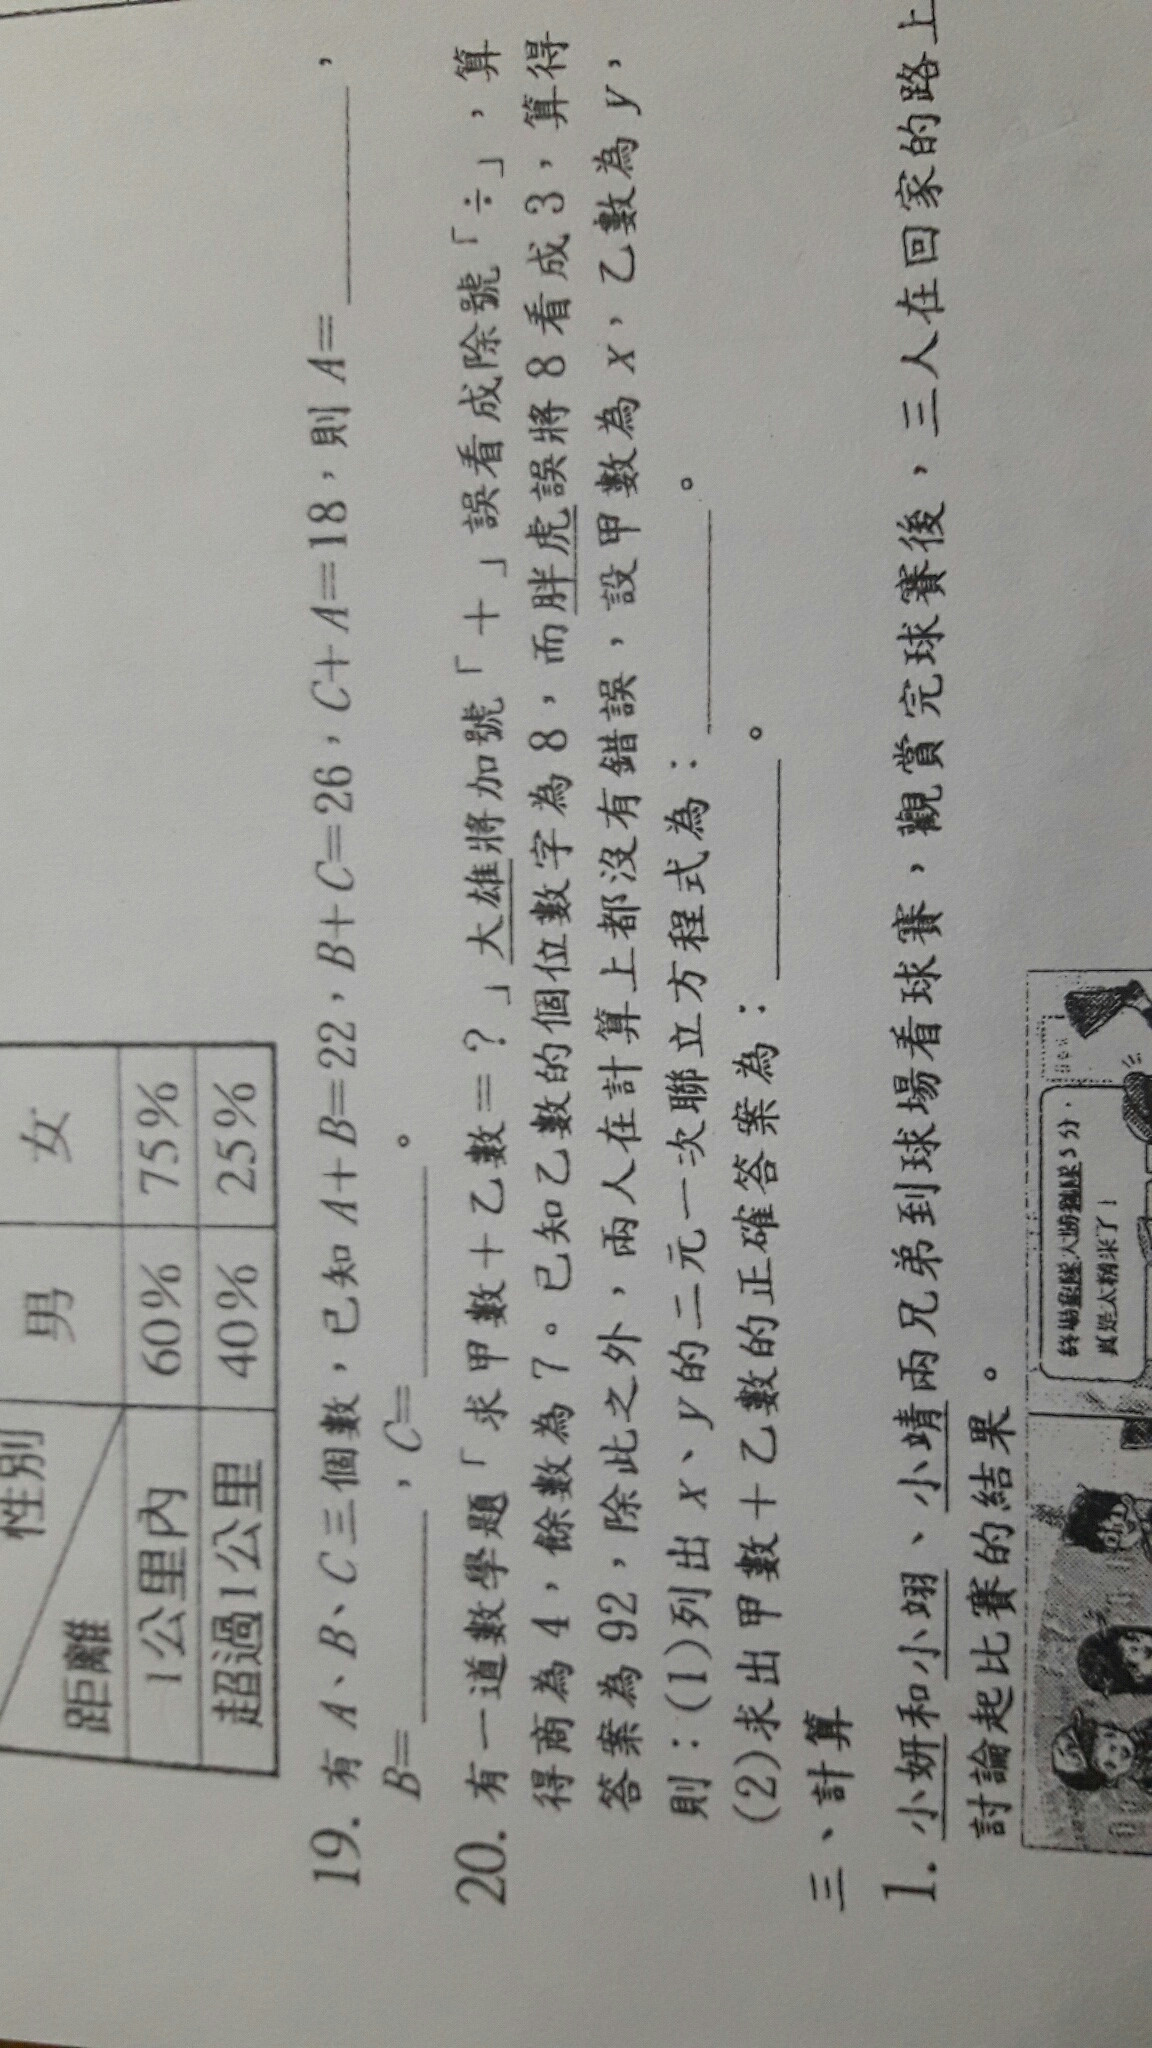 性別
距離
男
女
1公里內
60%
75%
超過1公里
40%
25%
19. 有A、B、C三個數，已知A+B=22，B+C=26，C+A=18，則A=______，
B=______，C=______。
20. 有一道數學題「求甲數+乙數=？」大雄將加號「+」誤看成除號「÷」，算
得商為4，餘數為7。已知乙數的個位數字為8，而胖虎誤將8看成3，算得
答案為92，除此之外，兩人在計算上都沒有錯誤，設甲數為x，乙數為y，
則：(1)列出x、y的二元一次聯立方程式為：______。
(2)求出甲數+乙數的正確答案為：______。
三、計算
1. 小妍和小翊、小靖兩兄弟到球場看球賽，觀賞完球賽後，三人在回家的路上
討論起比賽的結果。
真是太精采了！